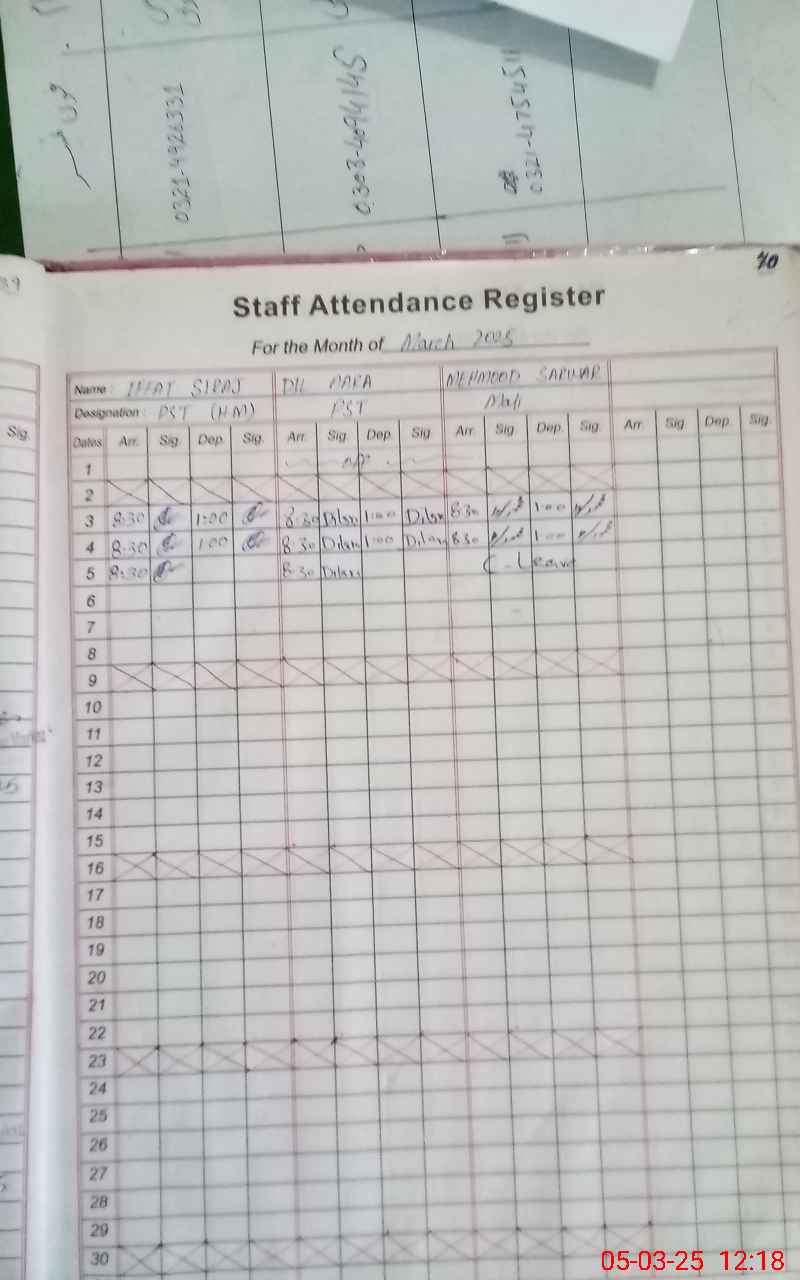 0321-4926331
0321-4754511
70
Staff Attendance Register
For the Month of March 2025
Name : IFFAT SIRAJ DIL MEHMOOD SARWAR
Designation : PST (HM) PST Mali
Sig.
Dates Arr. Sig. Dep. Sig. Arr. Sig. Dep. Sig Arr. Sig. Dep. Sig. Arr. Sig. Dep. Sig.
1
2
3 8:30 1:00 8:30 Dilara 1:00 Dilara 8:30 1:00
4 8:30 1:00 8:30 Dilara 1:00 Dilara 8:30 1:00
5 8:30 8:30 Dilara C. Leave
6
7
8
9
10
11
12
13
14
15
16
17
18
19
20
21
22
23
24
25
26
27
28
29
30
05-03-25 12:18